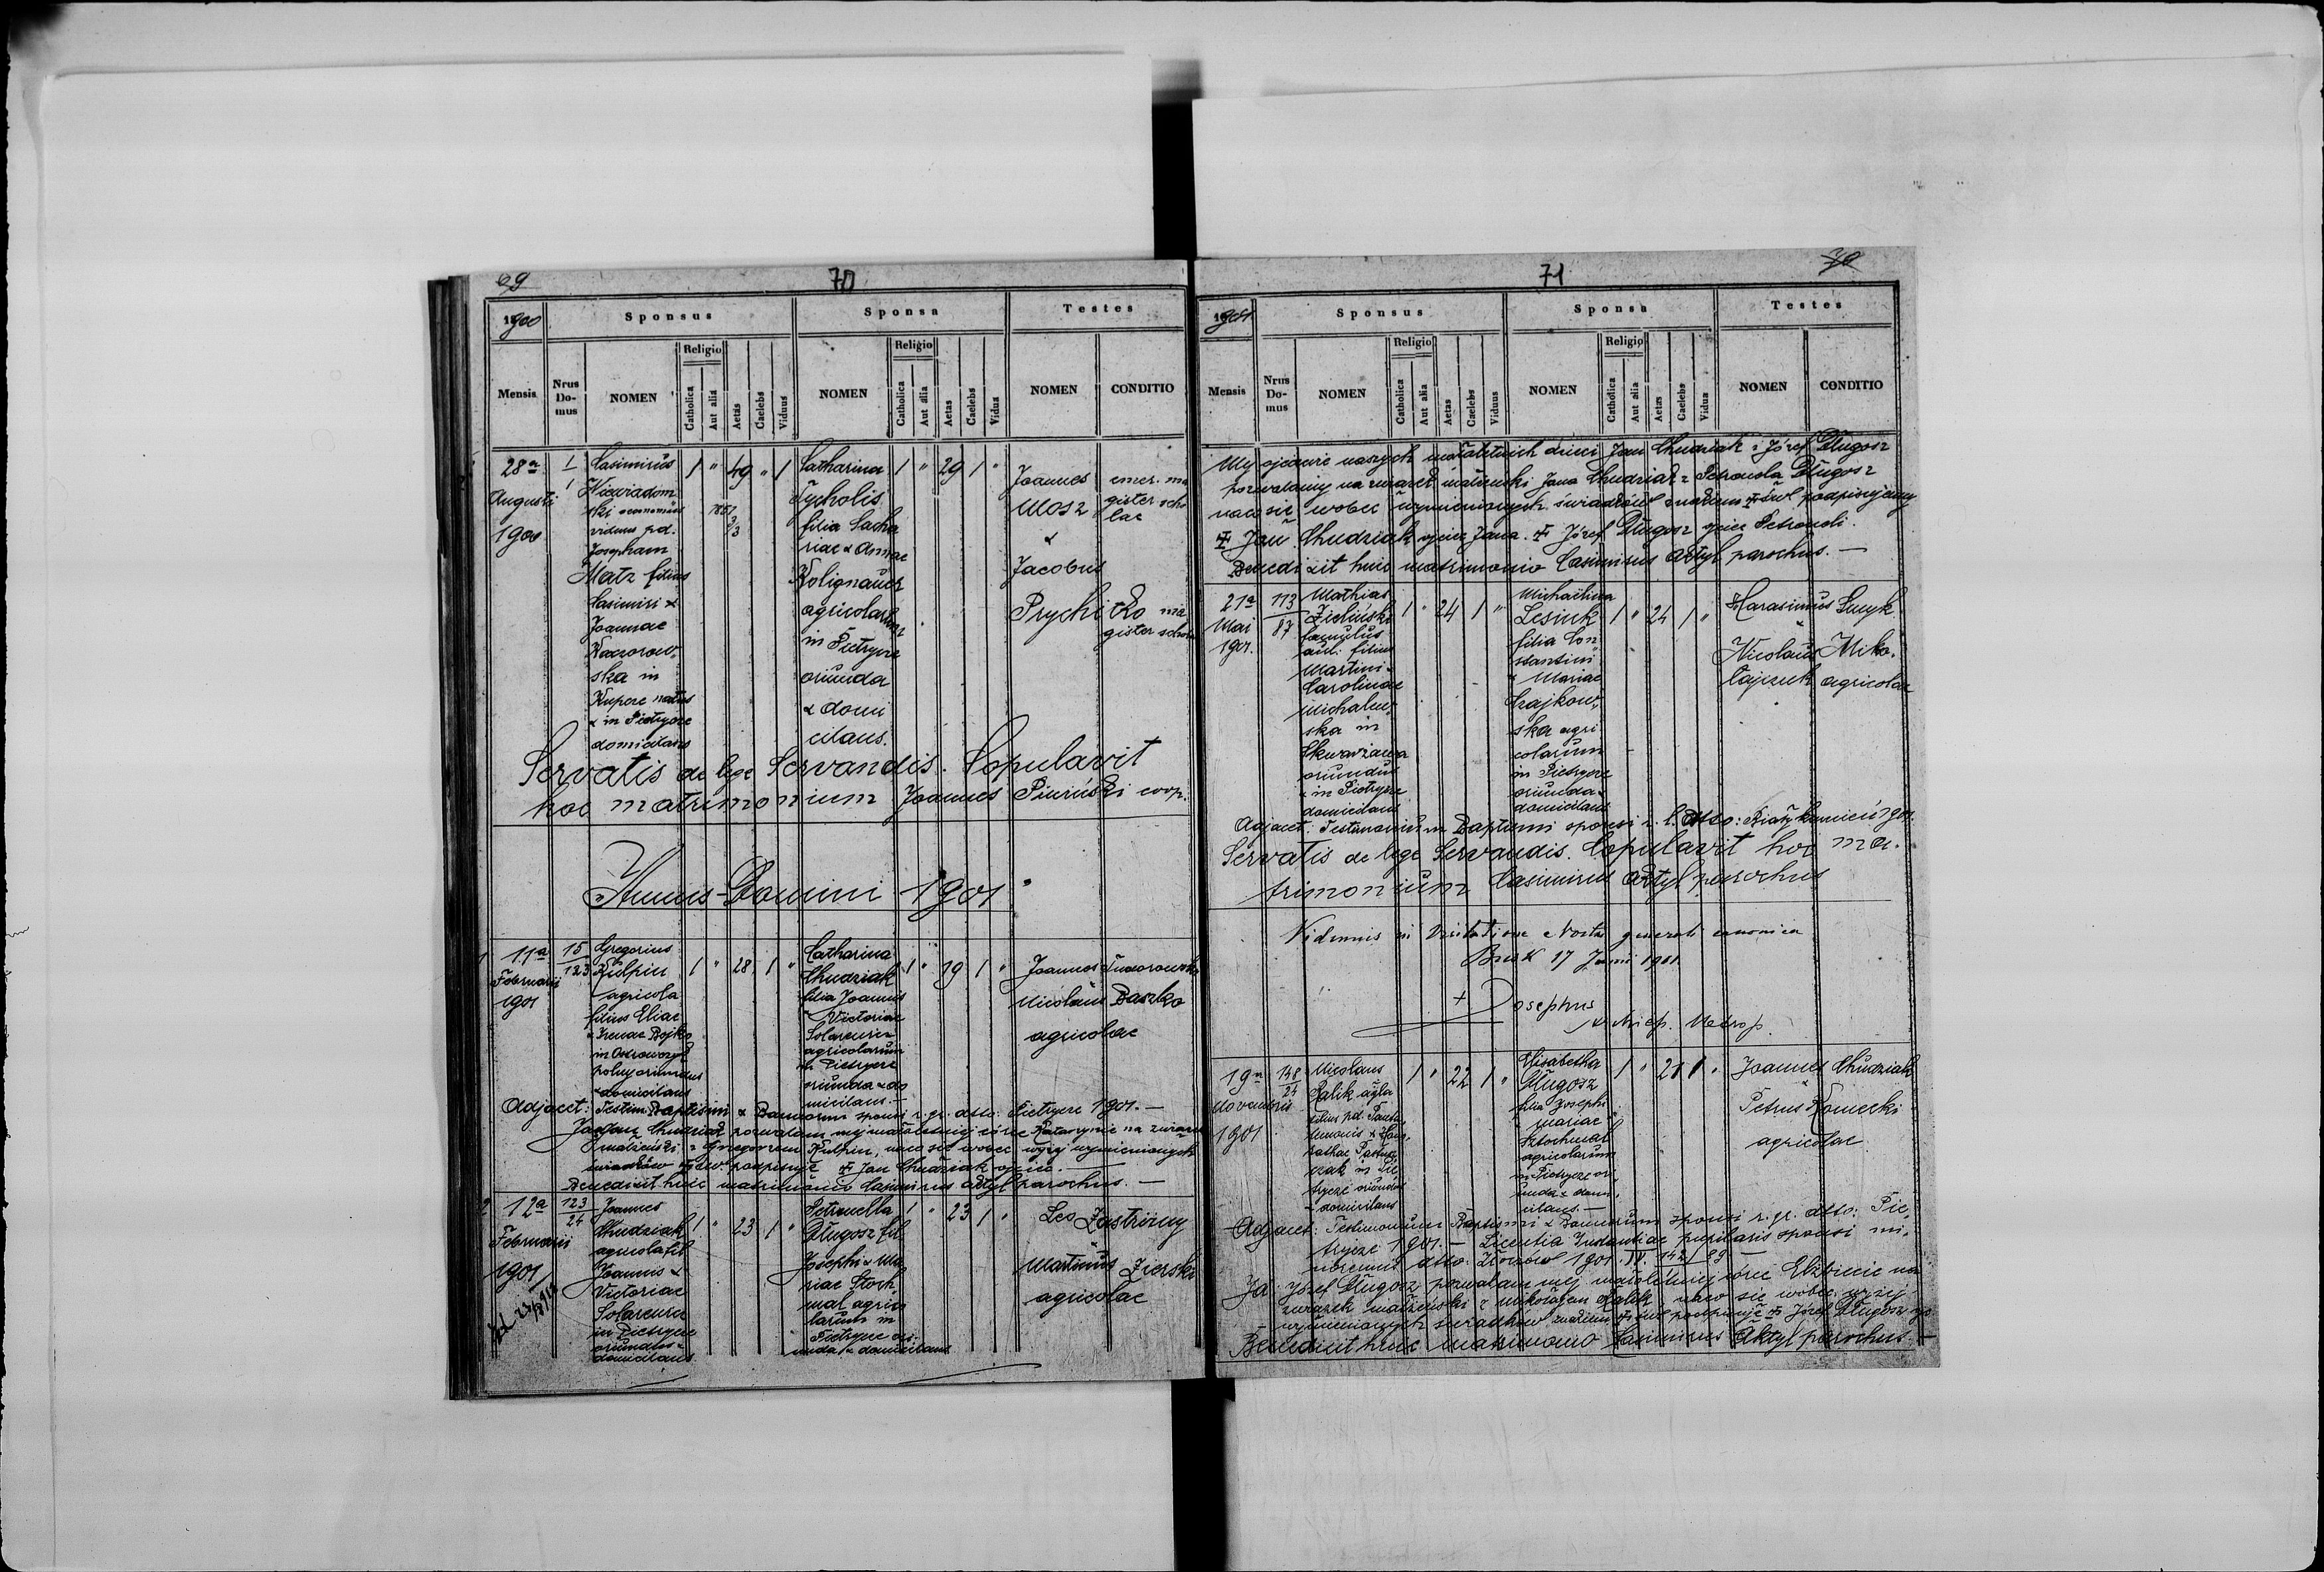 69
70
1900
Sponsus
Sponsa
Testes
Mensis
Nrus Do-mus
NOMEN
Religio
Catholica
Aut alia
Aetas
Caelebs
Viduus
NOMEN
Religio
Catholica
Aut alia
Aetas
Caelebs
Vidua
NOMEN
CONDITIO
28a
Augusti
1900
1
1
Casimirus
Niewiadom
ski
viduus pd.
Josepham
Matz filius
Casimiri &
Joannae
Kaczorow
ska in
Kupcze natus
& in Pietrycze
domicilans
1 " 49 " 1
1851
3/3
Catharina
Tycholis
filia Zacha
riae & Annae
Kolignauer
agricolarum
in Pietrycze
oriunda
& domi
cilans.
1 " 29 1 "
Joannes
Mosz
&
Jacobus
Prychitko
emer. ma
gister scho
lae
ma
gister scholae
Servatis de lege Servandis. Copulavit
hoc matrimonium Joannes Piwiński coop.
Annus Domini 1901
1
11a
Februarii
1901
15
123
Gregorius
Kulpin
agricola
filius Eliae
& Irenae Bojko
in
poluj oriundus
& domicilans
1 " 28 1 "
Catharina
Chudziak
filia Joannis
& Victoriae
agricolarum
in Pietrycze
oriunda & do
micilans.—
1 " 19 1 "
Joannes
Nicolaus Baszko
agricolae
Adjacet: Testim. Baptismi & Bannorum sponsi r. gr. dtto. Pietrycze 1901.—
Ja Jan Chudziak pozwalam mej małoletniej córce Katarzynie na związek
małżeński z Gregorem Kulpin, naco się wobec wyżej wymienionych
świadków podpisuję ++ Jan Chudziak ojciec.—
Benedixit huic matrimonio Casimirus Aktyl parochus.—
2
12a
Februarii
1901
123
24
Joannes
Chudziak
agricola fil.
Joannis &
Victoriae
in Pietrycze
oriundus &
domicilans
1 " 23 1 "
Petronella
Długosz fil.
Josephi & Ma
riae Stoch
mal agrico
larum in
Pietrycze ori
unda & domicilans
1 " 23 1 "
Leo Zastrizny
"
Martinus Zierski
agricolae
71
70
1901
Sponsus
Sponsa
Testes
Mensis
Nrus Do-mus
NOMEN
Religio
Catholica
Aut alia
Aetas
Caelebs
Viduus
NOMEN
Religio
Catholica
Aut alia
Aetas
Caelebs
Vidua
NOMEN
CONDITIO
My ojcowie naszych małoletnich dzieci Jan Chudziak i Józef Długosz
pozwalamy na związek małżeński Jana Chudziak z Petronelą Długosz
naco się wobec wymienionych świadków znakiem + św. podpisujemy
++ Jan Chudziak ojciec Jana. ++ Józef Długosz ojciec Petroneli.
Benedixit huic matrimonio Casimirus Aktyl parochus.—
21a
Mai
1901.
113
87
Mathias
Zieliński
famulus
aul. filius
Martini &
Carolinae
Michalew
ska in
Skwarzawa
oriundus
& in Pietrycze
domicilans
1 " 24 1 "
Michaelina
Lesiuk
filia Con
stantini
& Mariae
Czajkow
ska agri
colarum
in Pietrycze
oriunda &
domicilans
1 " 24 1 "
Harasimus Smyk
"
Nicolaus Miko
łajczuk agricolae
Adjacet: Testimonium Baptismi sponsi r. l. dtto: Biały kamień 1901.
Servatis de lege Servandis. Copulavit hoc ma
trimonium Casimirus Aktyl parochus
Vidimus in Visitatione Nostra generali canonica
Busk 17 Junii 1901.
+ Josephus
Archiep. Metrop.
19a
Novembris
1901
148
24
Nicolaus
Ralik agla
filius pd. Pauli
& Ka
in Pie
trycze oriundus
& domicilans
1 " 22 1 "
Elisabetha
Długosz
filia Josephi
& Mariae
Sztochmal
agricolarum
in Pietrycze ori
unda & domi
cilans.—
1 " 21 1 "
Joannes Chudziak
"
Petrus Konecki
agricolae
Adjacet: Testimonium Baptismi & Bannorum sponsi r. gr. dtto: Pie
trycze 1901.— Licentia Instantiae pupillaris sponsi mi
norennis dtto: Złoczów 1901. IV. 142/89 —
Ja Józef Długosz pozwalam mej małoletniej córce Elżbiecie na
związek małżeński z Mikołajem Ralik naco się wobec wyżej
wymienionych świadków znakiem + św. podpisuję ++ Józef Długosz ojc.
Benedixit huic matrimonio Casimirus Aktyl parochus.—